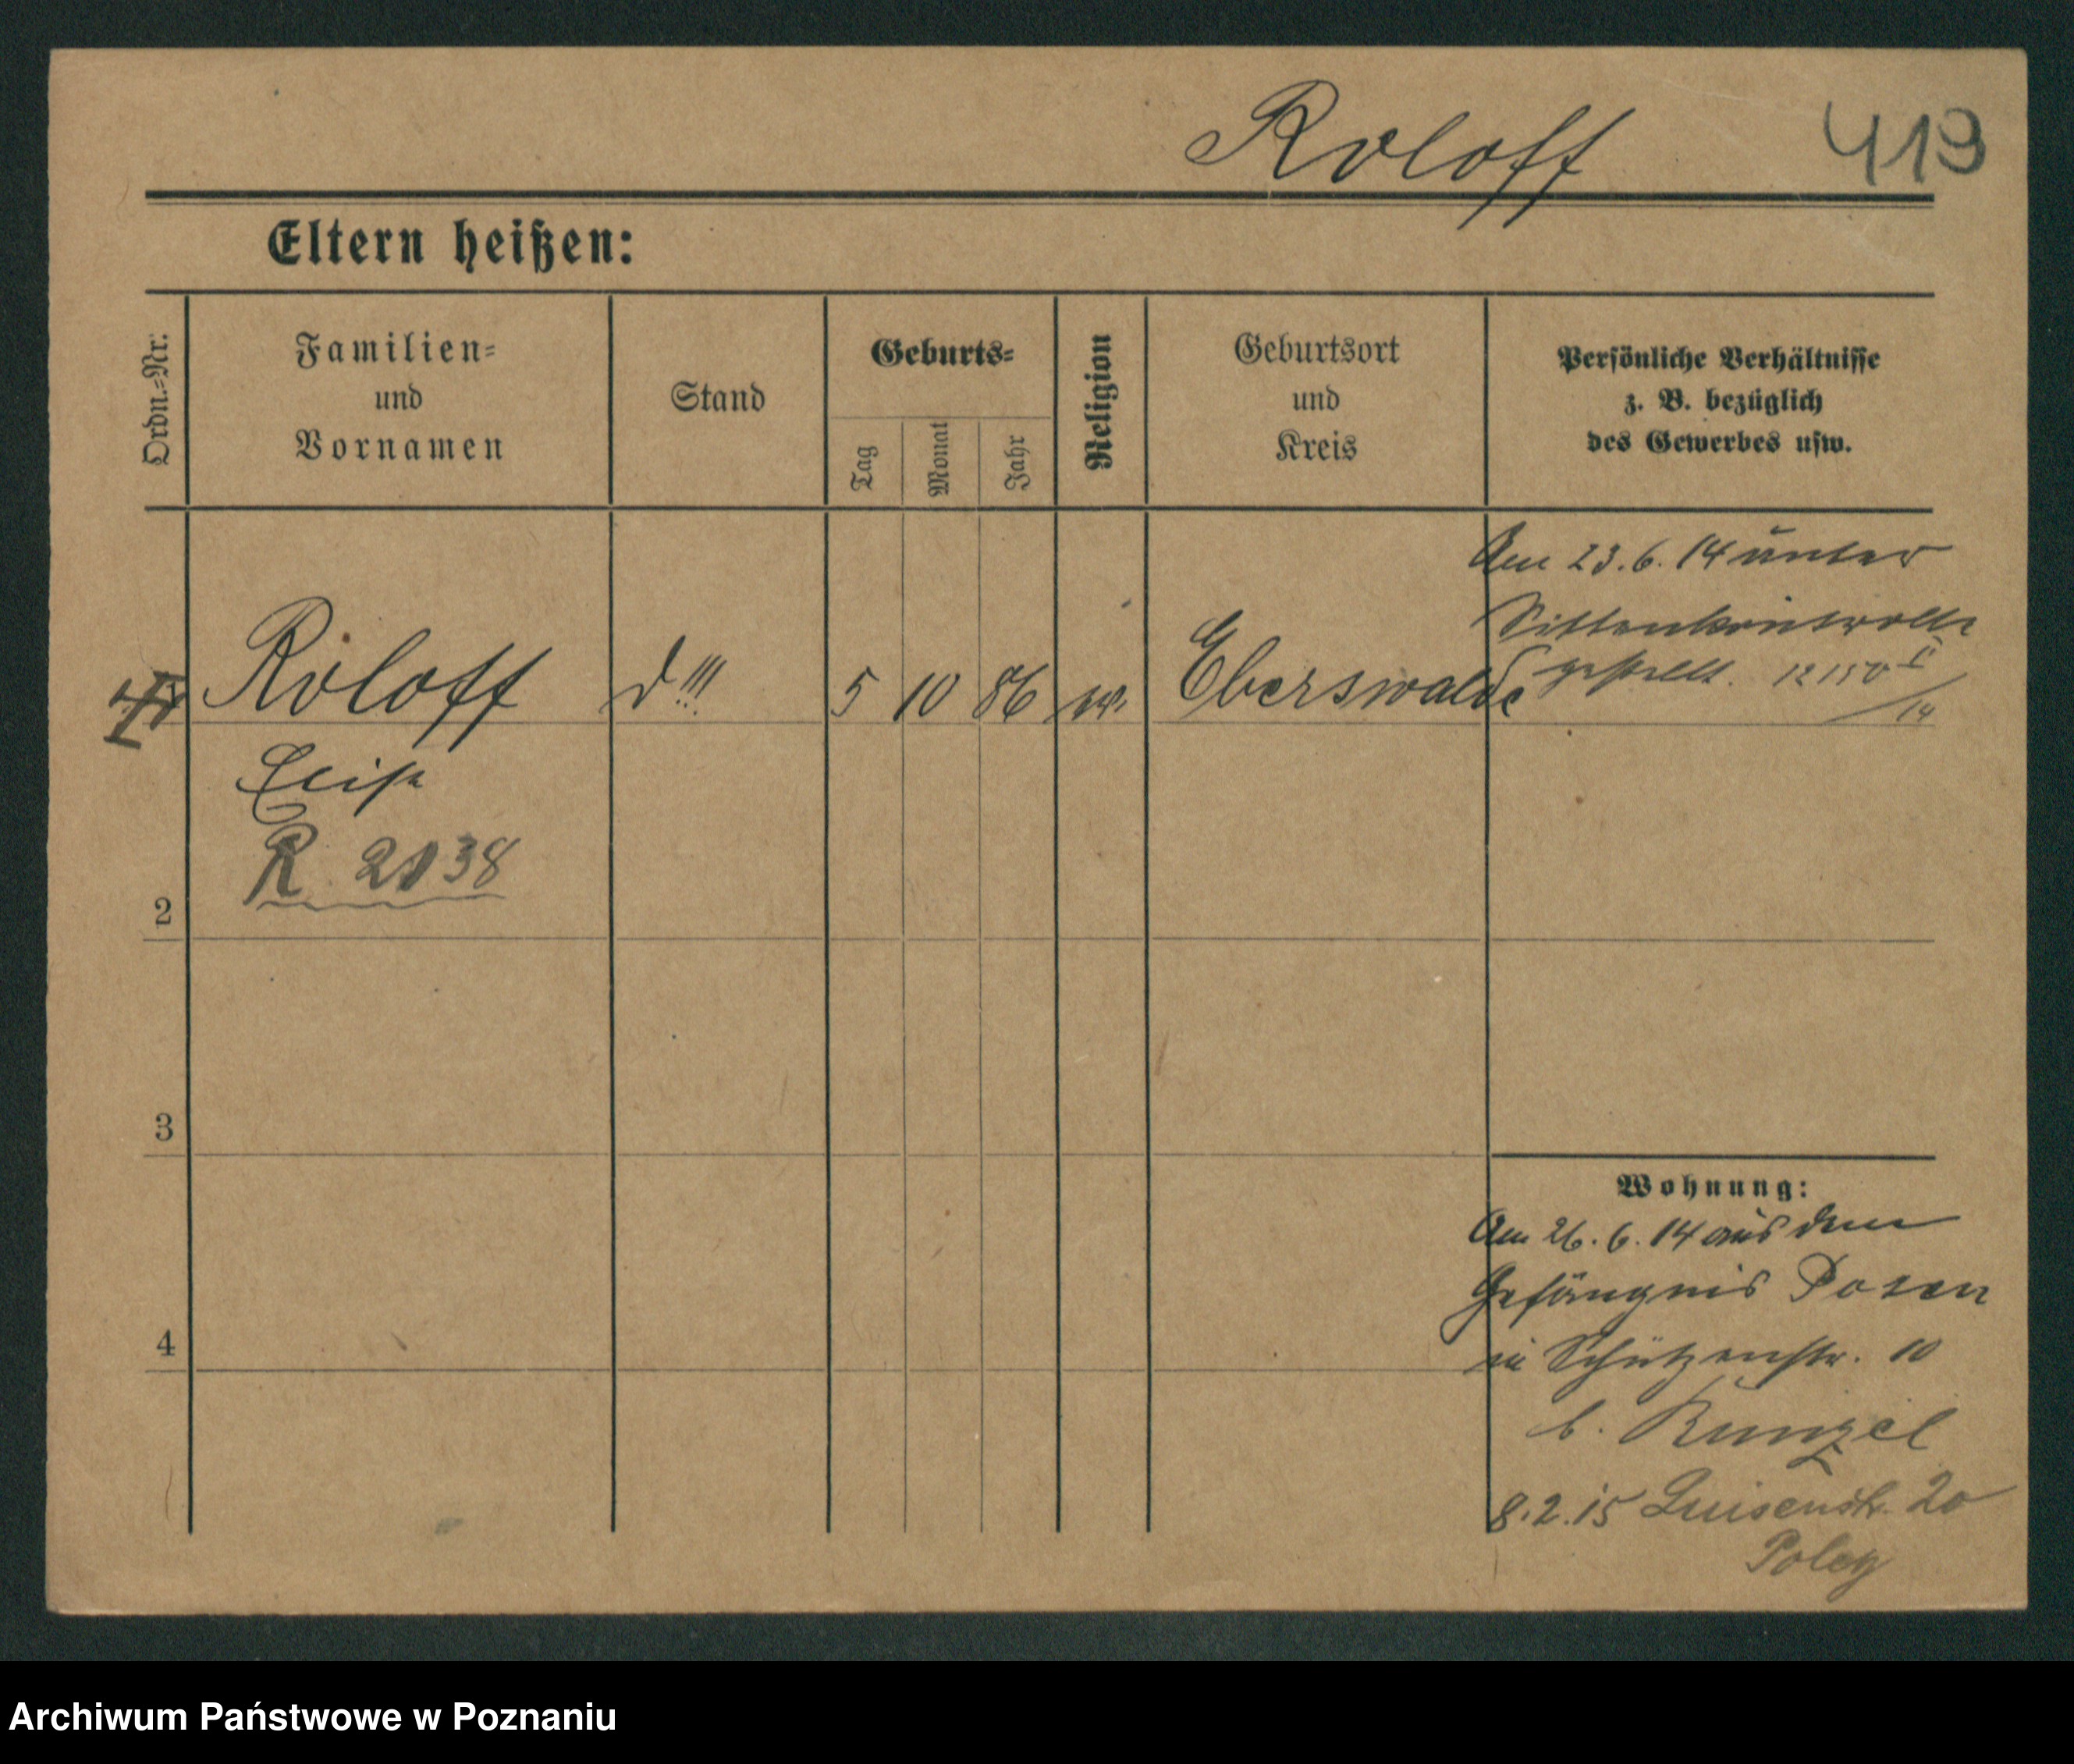 Roloff 419
Eltern heißen:
Ordn.=Nr.
Familien=
und
Vornamen
Stand
Geburts=
Tag
Monat
Jahr
Religion
Geburtsort
und
Kreis
Persönliche Verhältnisse
z. B. bezüglich
des Gewerbes usw.
Am 23.6.14 unter
Sittenkontrolle
gestellt. 12150 II/14
Roloff d!!! 5 10 86 ev. Eberswalde
R 2138
2
3
Wohnung:
Am 26.6.14 aus dem
Gefängnis Posen
4
in Schützenstr. 10
b. Kunzel
8.2.15 Luisenstr. 20
Poley
Archiwum Państwowe w Poznaniu